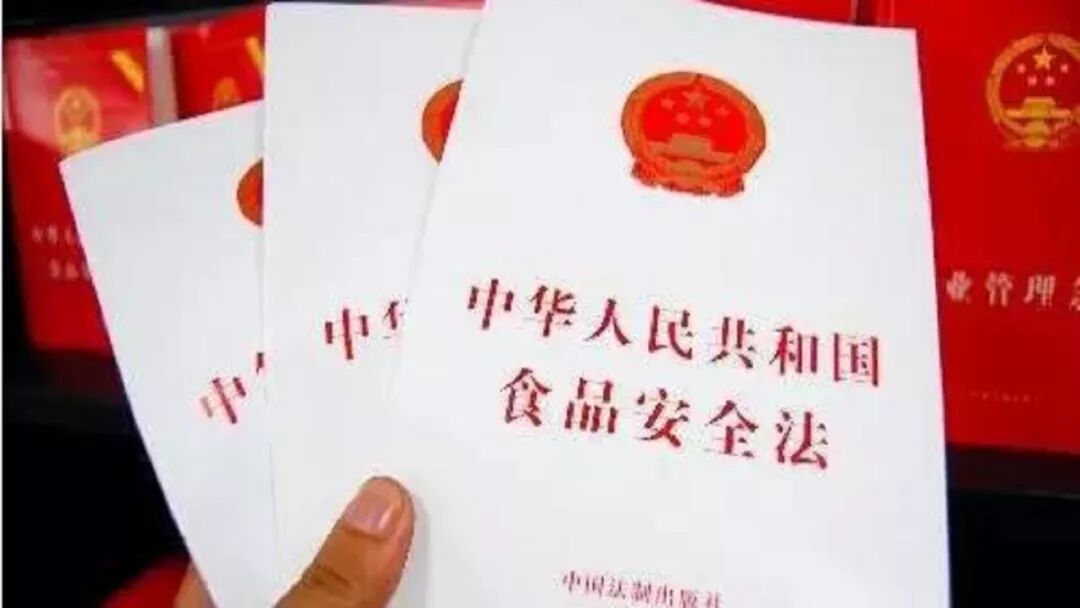 中华人民共和国
食品安全法
中国法制出版社
中华
中华
业管理